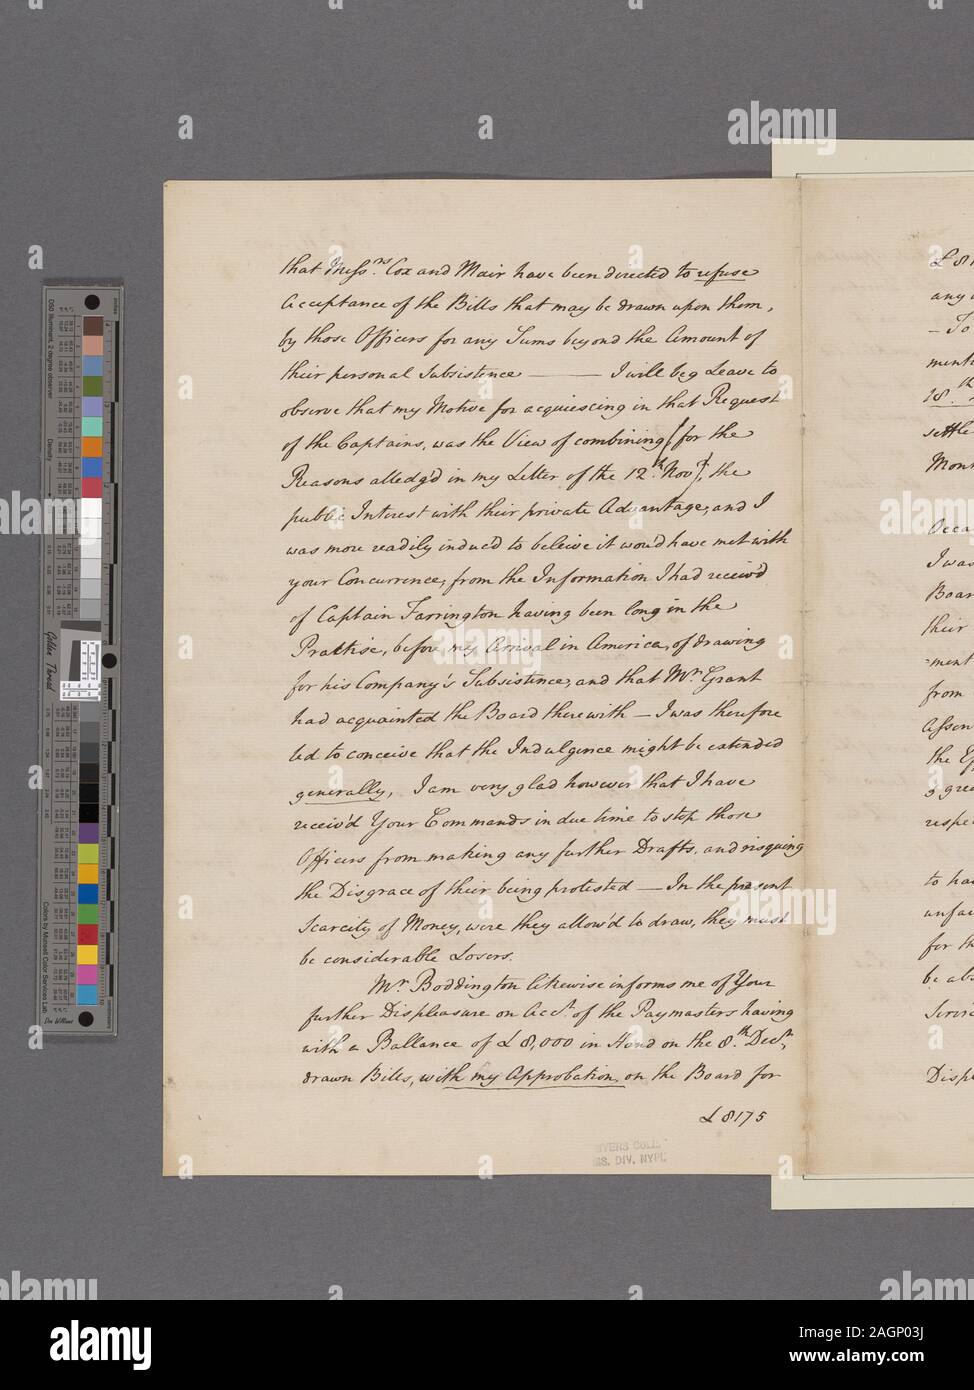 that Mess.rs Cox and Mair have been directed to refuse
Acceptance of the Bills that may be drawn upon them,
by those Officers for any Sums beyond the Amount of
their personal Subsistence — I will beg Leave to
observe that my Motive for acquiescing in that Request
of the Captains, was the View of combining (for the
Reasons alledg'd in my Letter of the 12.th Nov.r), the
public Interest with their private Advantage, and I
was more readily induc'd to beleive it wou'd have met with
your Concurrence, from the Information I had receiv'd
of Captain Farrington having been long in the
Practise, before my Arrival in America, of drawing
for his Company's Subsistence, and that Mr. Grant
had acquainted the Board therewith — I was therefore
led to conceive that the Indulgence might be extended
generally, I am very glad however that I have
receiv'd Your Commands in due time to stop those
Officers from making any further Drafts, and risquing
the Disgrace of their being protested — In the present
Scarcity of Money, were they allow'd to draw, they must
be considerable Losers.
Mr. Boddington likewise informs me of Your
further Displeasure on Acc.t of the Paymasters having
with a Ballance of £8,000 in Hand on the 8.th Dec.r,
drawn Bills, with my Approbation, on the Board for
£8175
MYERS COLL.
MSS. DIV. NYPL
£8
any
- To
18.th
settle
Board
their
from
the
respe
to ha
for th
be abs
Displ
Golden Thread
D50 Illuminant, 2 degree observer
Density
Colors by Munsell Color Services Lab
a
alamy
alamy
Image ID: 2AGP03J
www.alamy.com